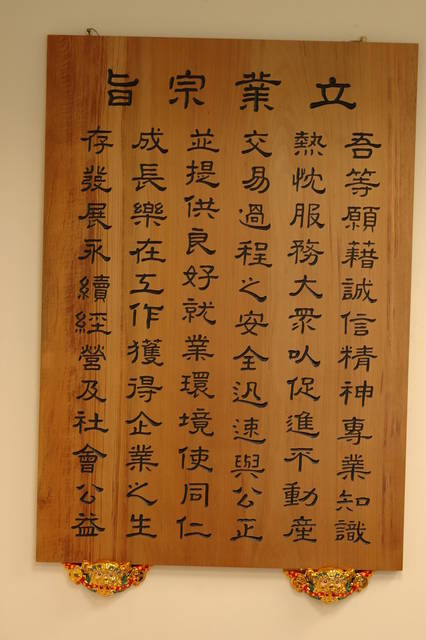 立業宗旨
吾等願藉誠信精神專業知識
熱忱服務大眾以促進不動產
交易過程之安全迅速與公正
並提供良好就業環境使同仁
成長樂在工作獲得企業之生
存發展永續經營及社會公益